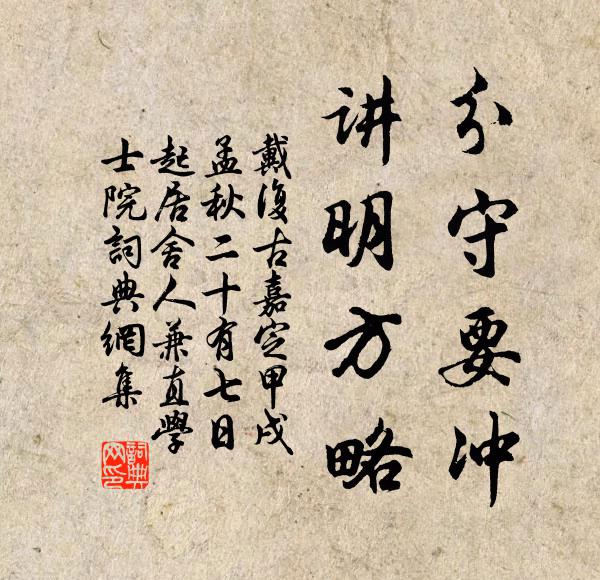 分守要冲
讲明方略
戴復古嘉定甲戌
孟秋二十有七日
起居舍人兼直學
士院詞典網集
詞典
网印